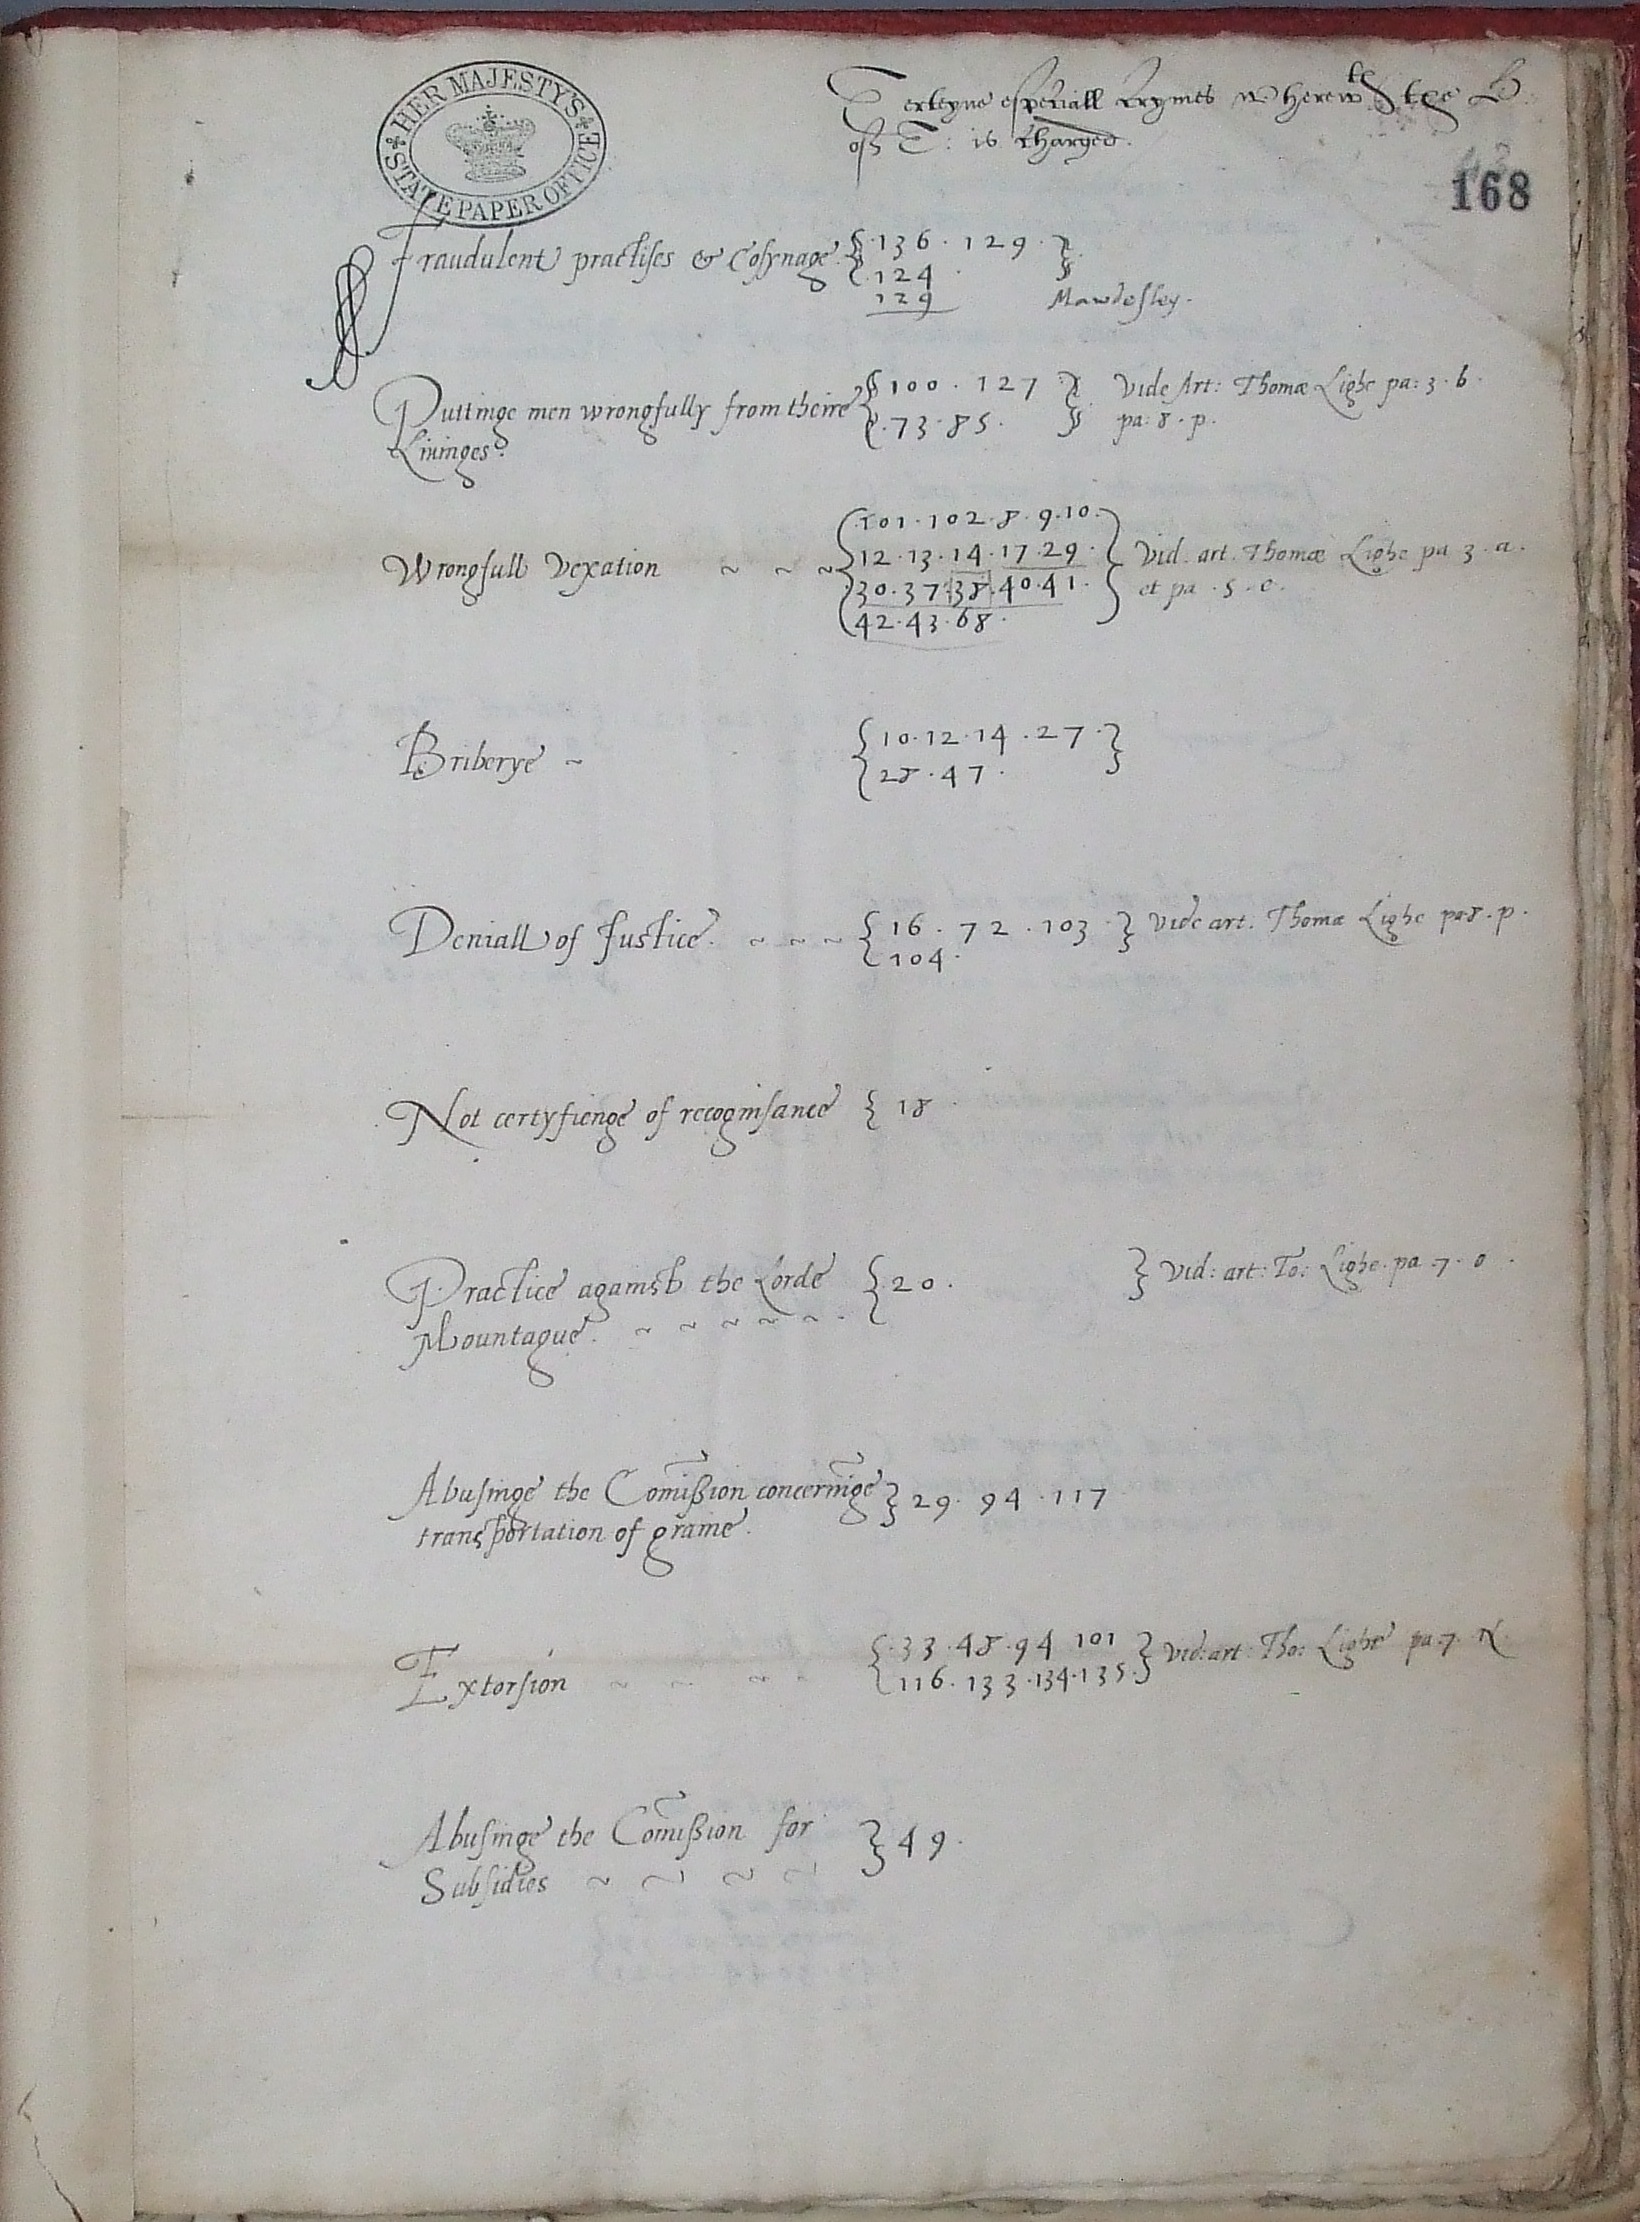 HER MAJESTY'S STATE PAPER OFFICE
Certeyne especiall Crymes wherewth the B
off C: is Charged.
43
168
Fraudulent practises & Cosynage. { 136 . 129 . }
124 .
129 Mawdesley.
Puttinge men wrongfully from theire { 100 . 127 } Vide Art: Thomæ Lighe pa: 3 . b .
Liuinges. 73 . 85 . pa: 8 . p .
101 . 102 . 8 . 9 . 10 .
Wrongfull Vexation ~ ~ ~ { 12 . 13 . 14 . 17 . 29 . } Vid. art. Thomæ Lighe pa 3 . a .
30 . 37 . 38 . 40 . 41 . et pa . 5 . e .
42 . 43 . 68 .
Briberye ~ { 10 . 12 . 14 . 27 . }
28 . 47 .
Deniall of Justice . ~ ~ ~ { 16 . 72 . 103 . } Vide art. Thomæ Lighe pa . 8 . p .
104 .
Not certyfienge of recognisance { 18 .
Practice against the Lorde { 20 . } Vid: art: To: Lighe . pa . 7 . o .
Mountague . ~ ~ ~ ~ ~
Abusinge the Comission concerninge } 29 . 94 . 117
transportation of graine .
Extorsion ~ ~ ~ { 33 . 48 . 94 101 } Vid: art: Tho: Lighe pa . 7 . N .
116 . 133 . 134 . 135 .
Abusinge the Comission for } 49 .
Subsidies ~ ~ ~ ~